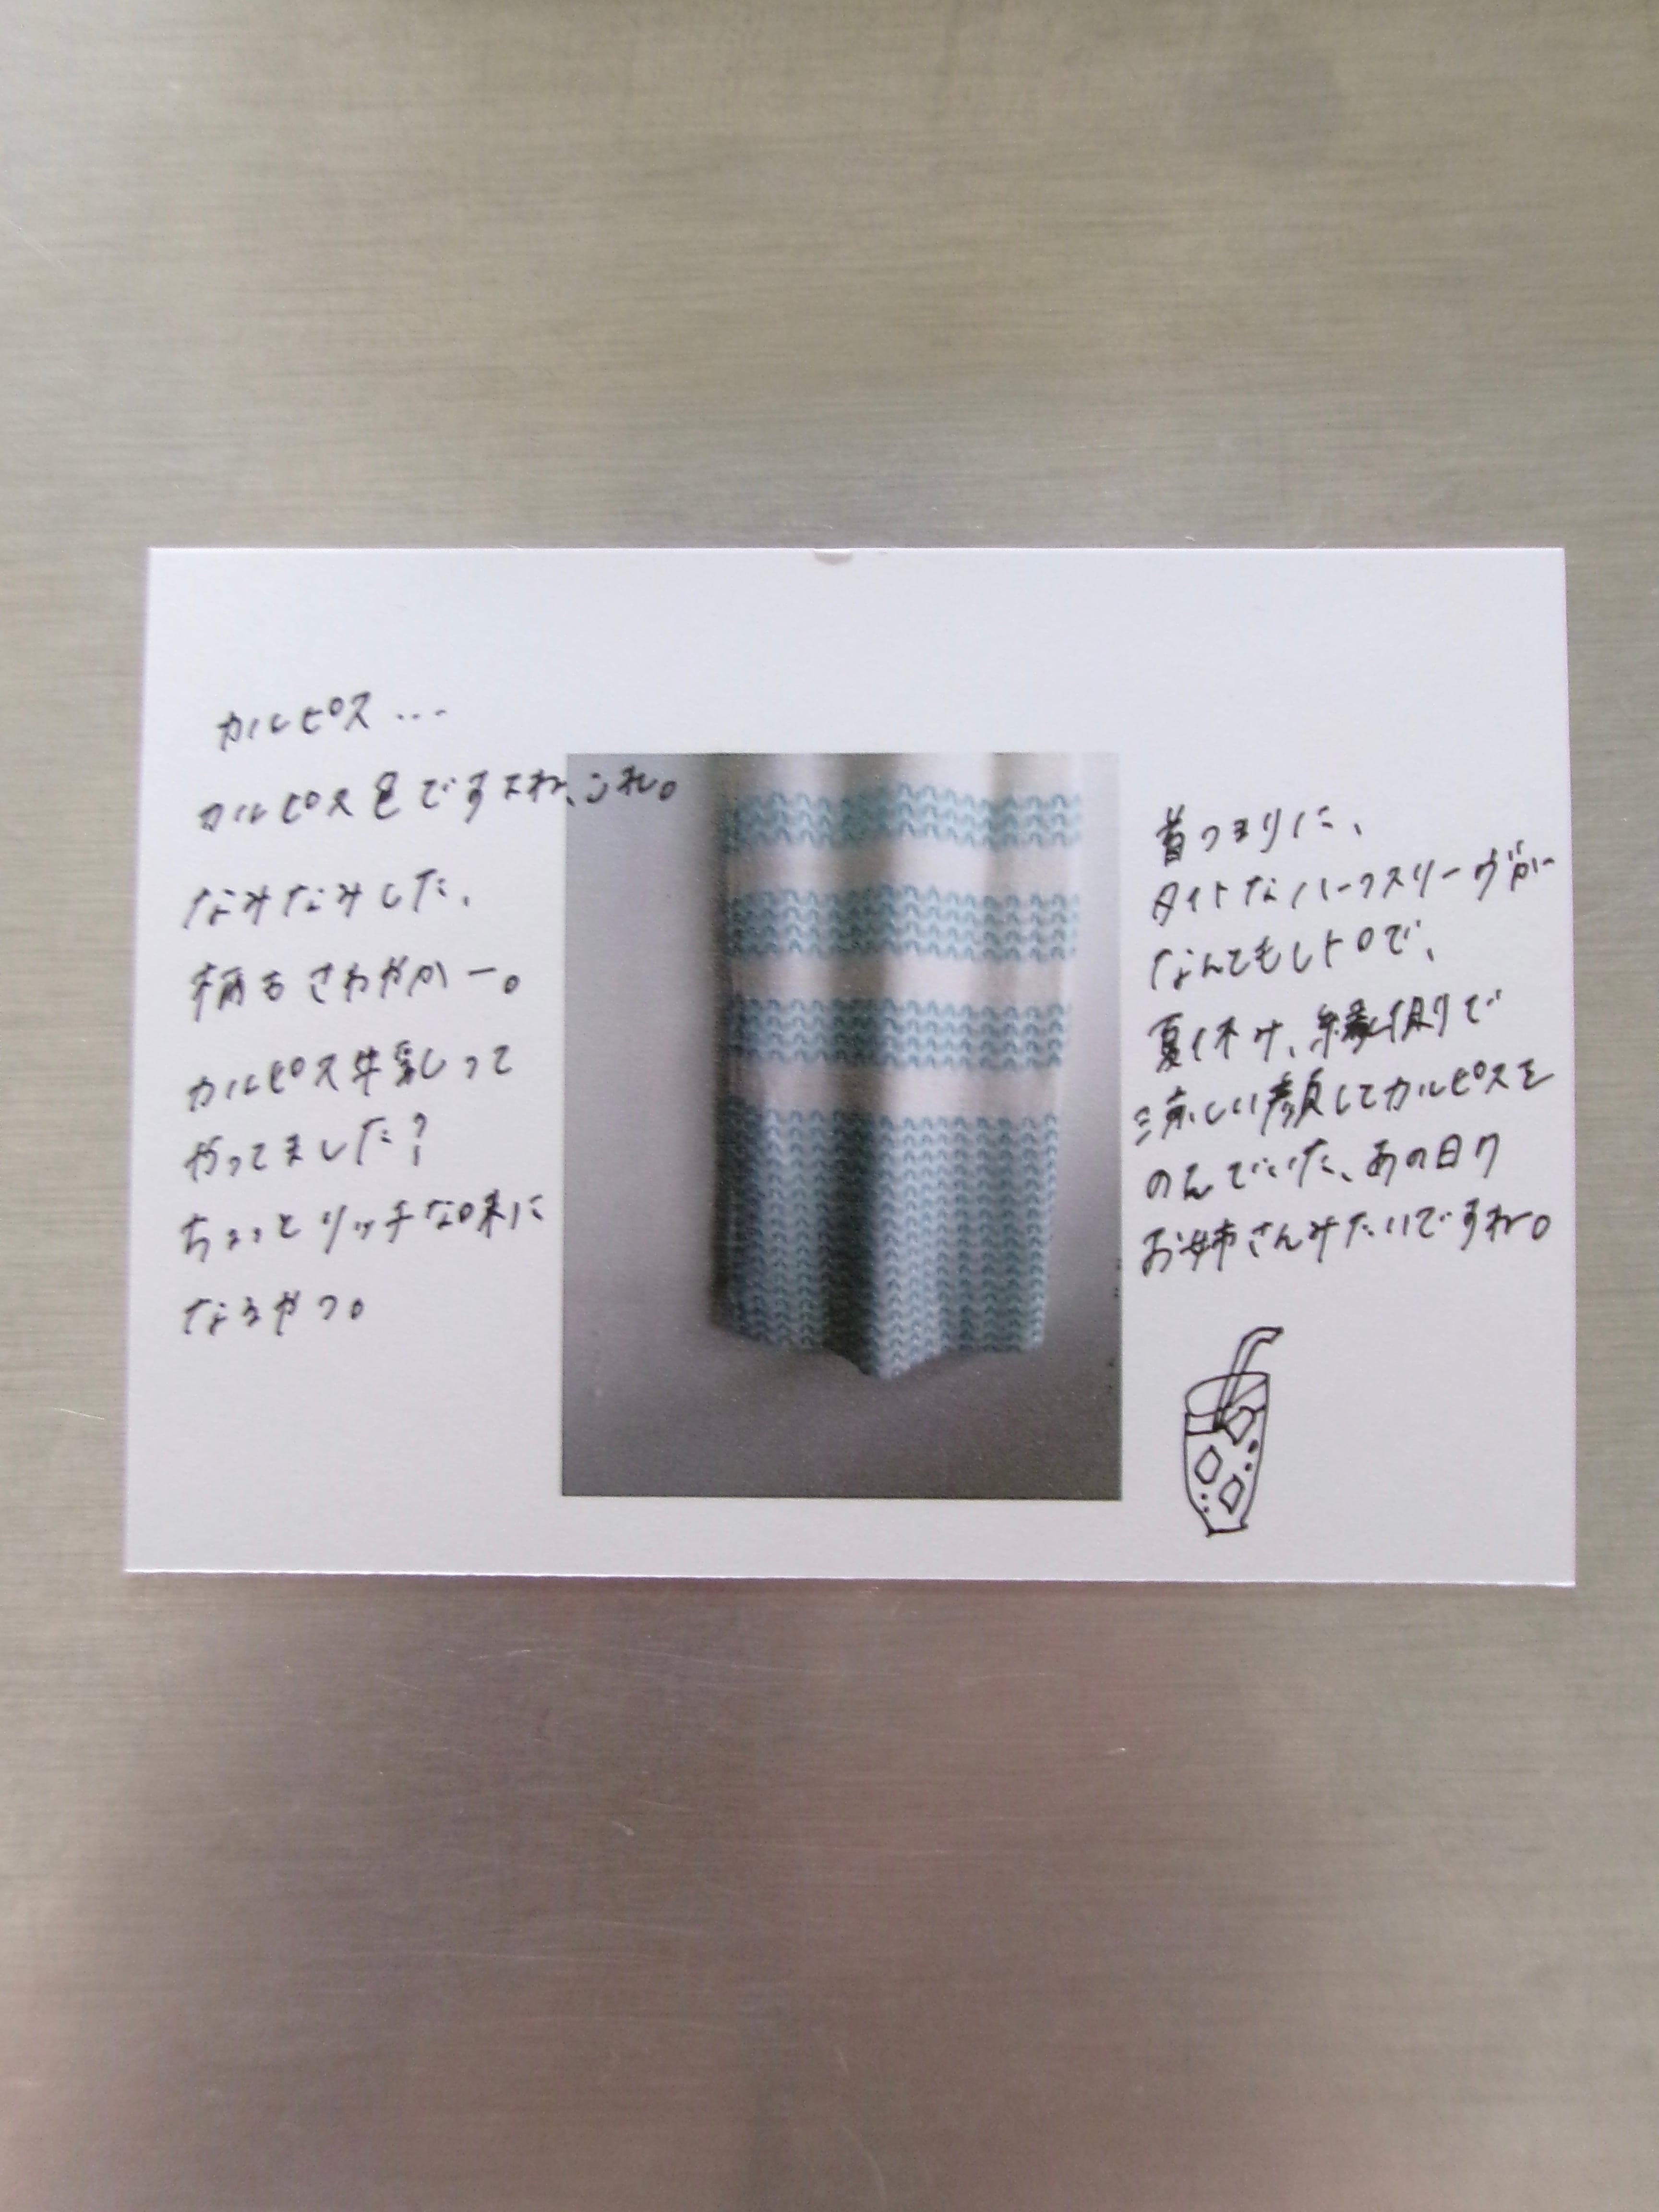 カルピス…
カルピス色ですよね、これ。
なみなみした、
柄もさわやかー。
カルピス牛乳って
やってました?
ちょっとリッチな味に
なるやつ。
首つまりに、
タイトなハーフスリーヴが
なんともレトロで、
夏休み、縁側で
涼しい顔してカルピスを
のんでいた、あの日の
お姉さんみたいですね。